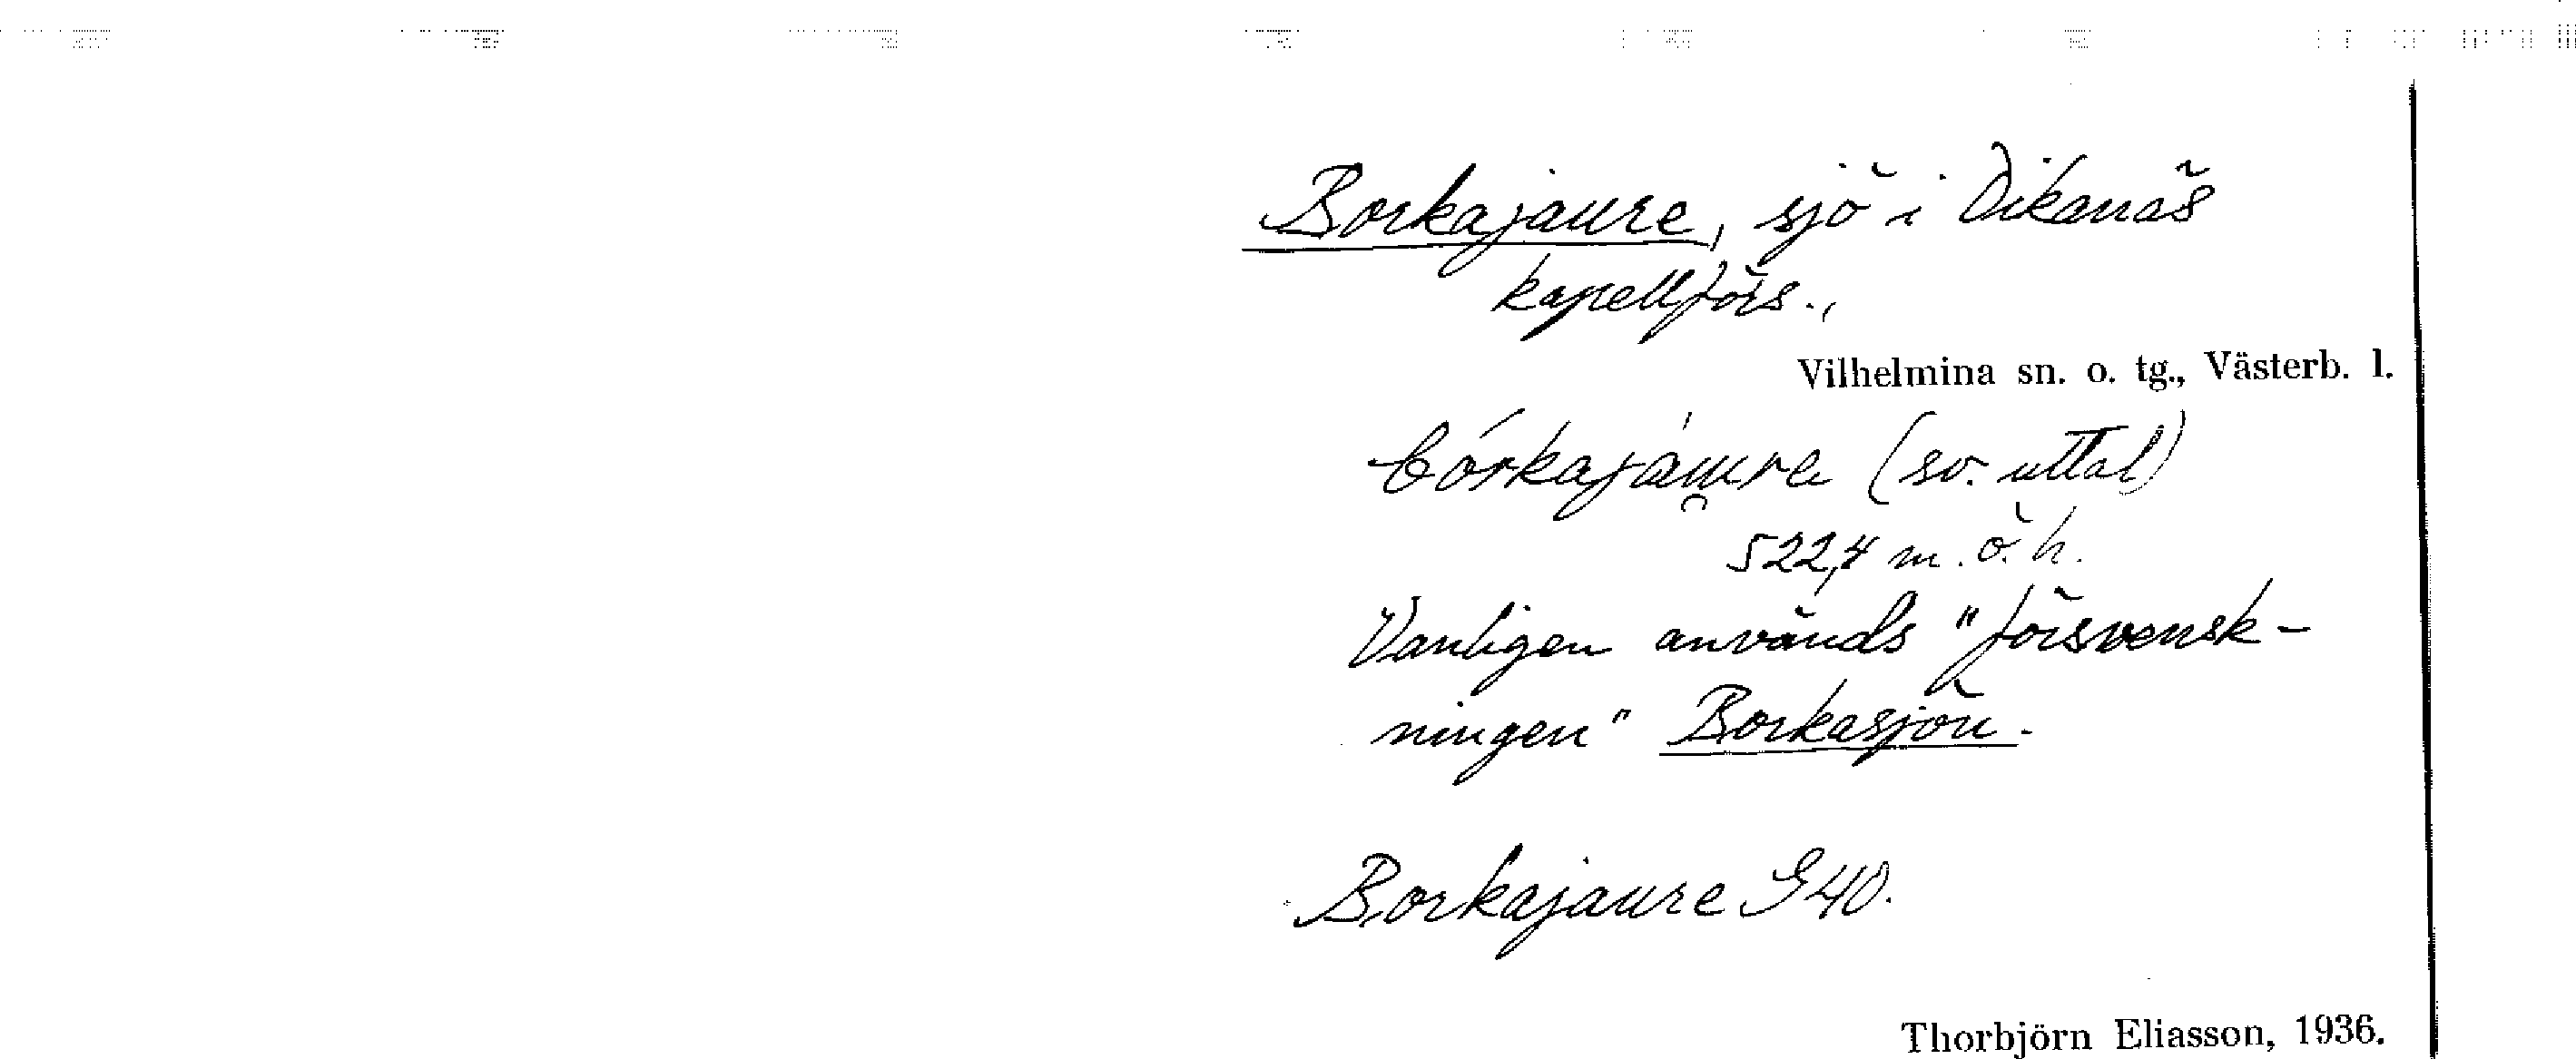 Borkajaure, sjö i Dikanäs
kapellförs.,
Vilhelmina sn. o. tg., Västerb. l.
bórkajàu̯re (sv. uttal)
522,4 m. ö. h.
Vanligen används "försvensk-
ningen" Borkasjön.
Borkajaure G40.
Thorbjörn Eliasson, 1936.